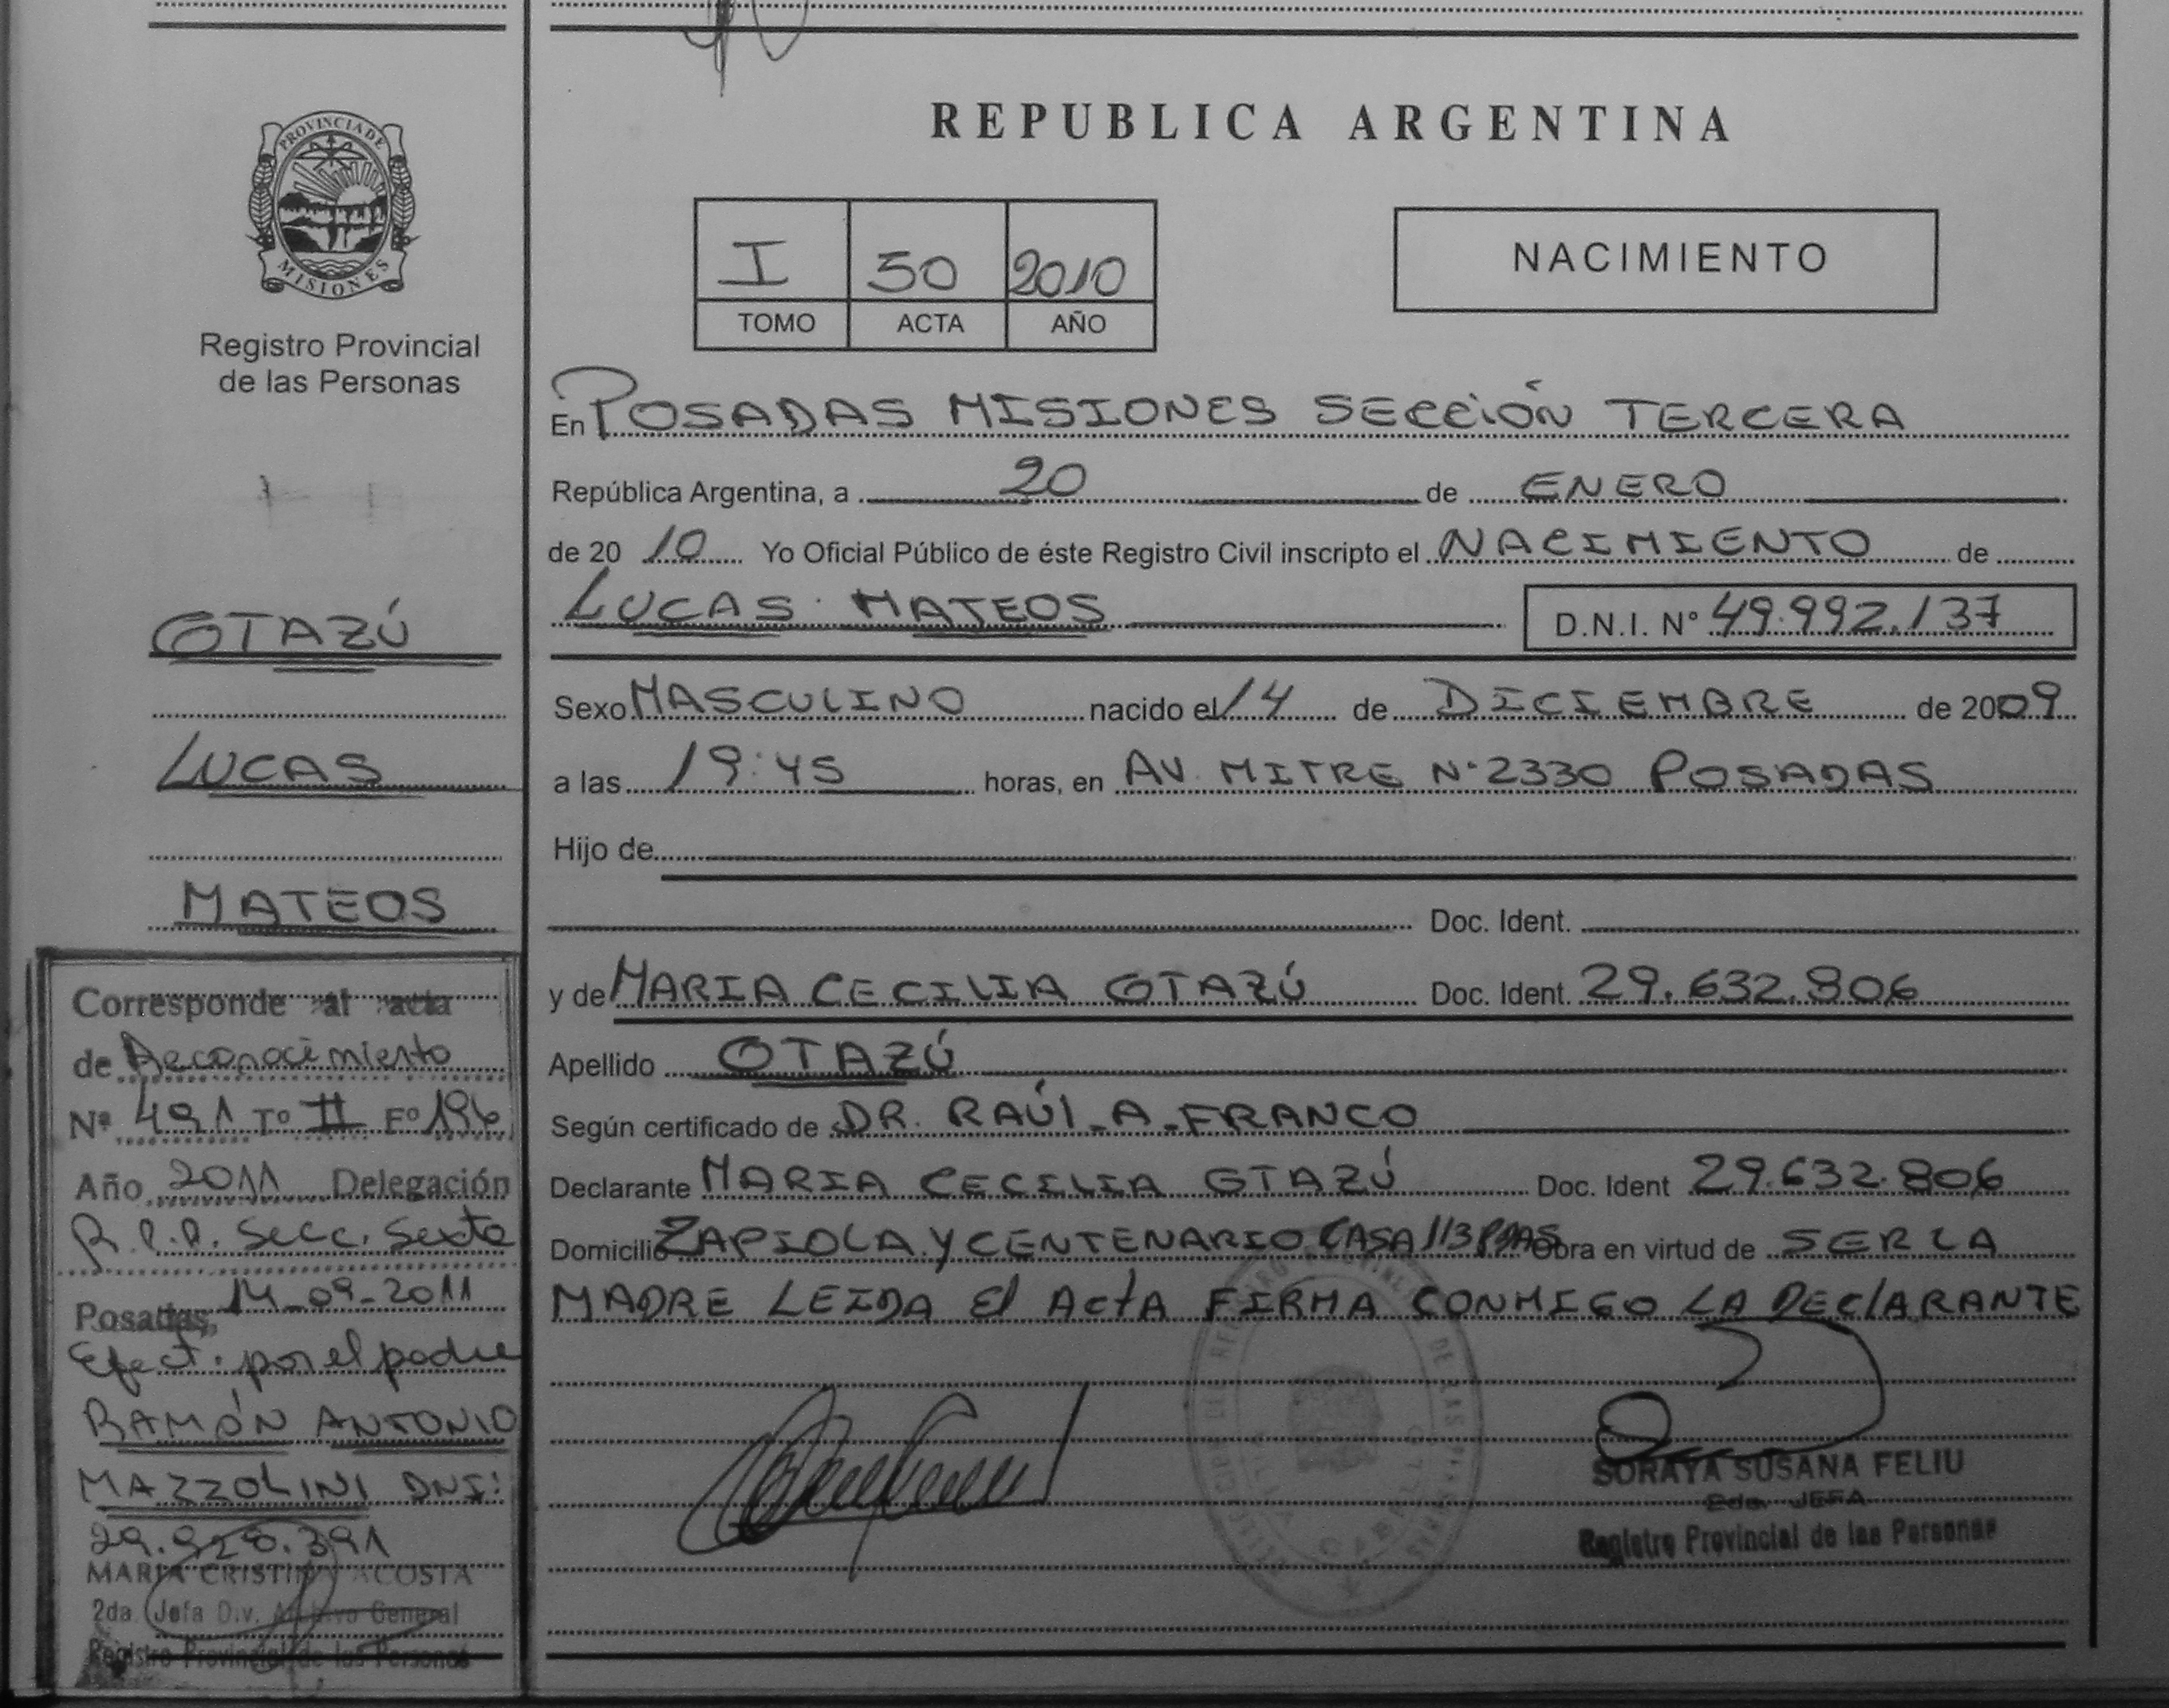 PROVINCIA DE
MISIONES
Registro Provincial
de las Personas
OTAZÚ
LUCAS
MATEOS
Corresponde al acta
de Reconocimiento
Nº 491 Tº II Fº 196
Año 2011 Delegación
R.P.P. Secc. Sexta
Posadas, 14-09-2011
Efect. por el padre
RAMÓN ANTONIO
MAZZOLINI DNI:
29.928.391
MARIA CRISTINA ACOSTA
2da. Jefa Div. Archivo General
Registro Provincial de las Personas
REPUBLICA ARGENTINA
I 50 2010
TOMO ACTA AÑO
NACIMIENTO
En POSADAS MISIONES SECCIÓN TERCERA
República Argentina, a 20 de ENERO
de 20 10 Yo Oficial Público de éste Registro Civil inscripto el NACIMIENTO de
LUCAS MATEOS D.N.I. Nº 49.992.137
Sexo MASCULINO nacido el 14 de DICIEMBRE de 2009
a las 19:45 horas, en AV. MITRE Nº 2330 POSADAS
Hijo de
Doc. Ident.
y de MARIA CECILIA OTAZÚ Doc. Ident. 29.632.806
Apellido OTAZÚ
Según certificado de DR. RAÚL A. FRANCO
Declarante MARIA CECILIA OTAZÚ Doc. Ident 29.632.806
Domicilio ZAPIOLA Y CENTENARIO CASA 113 PDAS Obra en virtud de SER LA
MADRE LEIDA El ActA FIRMA CONMIGO LA DEClARANTE
SORAYA SUSANA FELIU
JEFA
Registro Provincial de las Personas